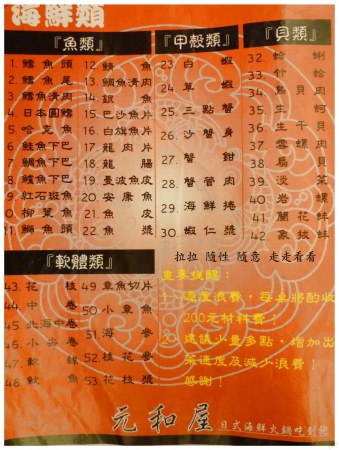 海鮮類
『魚類』
1. 鱈魚頭
2. 鱈魚尾
3. 鱈魚清肉
4. 日本圓鱈
5. 哈克魚
6. 鮭魚下巴
7. 鯛魚下巴
8. 鱸魚下巴
9. 紅石斑魚
10. 柳葉魚
11. 鱸魚頭
12. 鯛魚
13. 鯛魚清肉
14. 銀魚
15. 巴沙魚片
16. 白旗魚片
17. 龍肉片
18. 龍腸
19. 曼波魚皮
20. 安康魚
21. 魚皮
22. 魚漿
『甲殼類』
23. 白蝦
24. 草蝦
25. 三點蟹
26. 沙蟹身
27. 蟹鉗
28. 蟹管肉
29. 海鮮捲
30. 蝦仁漿
『貝類』
32. 蛤蜊
33. 竹蛤
34. 鳥貝肉
35. 生蚵
36. 生干貝
37. 雲螺肉
38. 扇貝
39. 淡菜
40. 岩螺
41. 蘭花蚌
42. 象拔蚌
『軟體類』
43. 花枝
44. 中卷
45. 北海中卷
46. 小卷
47. 軟絲
48. 魷魚
49. 章魚切片
50. 小章魚
51. 海參
52. 桂花參
53. 花枝漿
拉拉 隨性 隨意 走走看看
貴賓提醒：
1. 適度浪費，每桌將酌收
200元材料費！
2. 建議少量多點，增加出
菜速度及減少浪費！
感謝！
元和屋
日式海鮮火鍋吃到飽